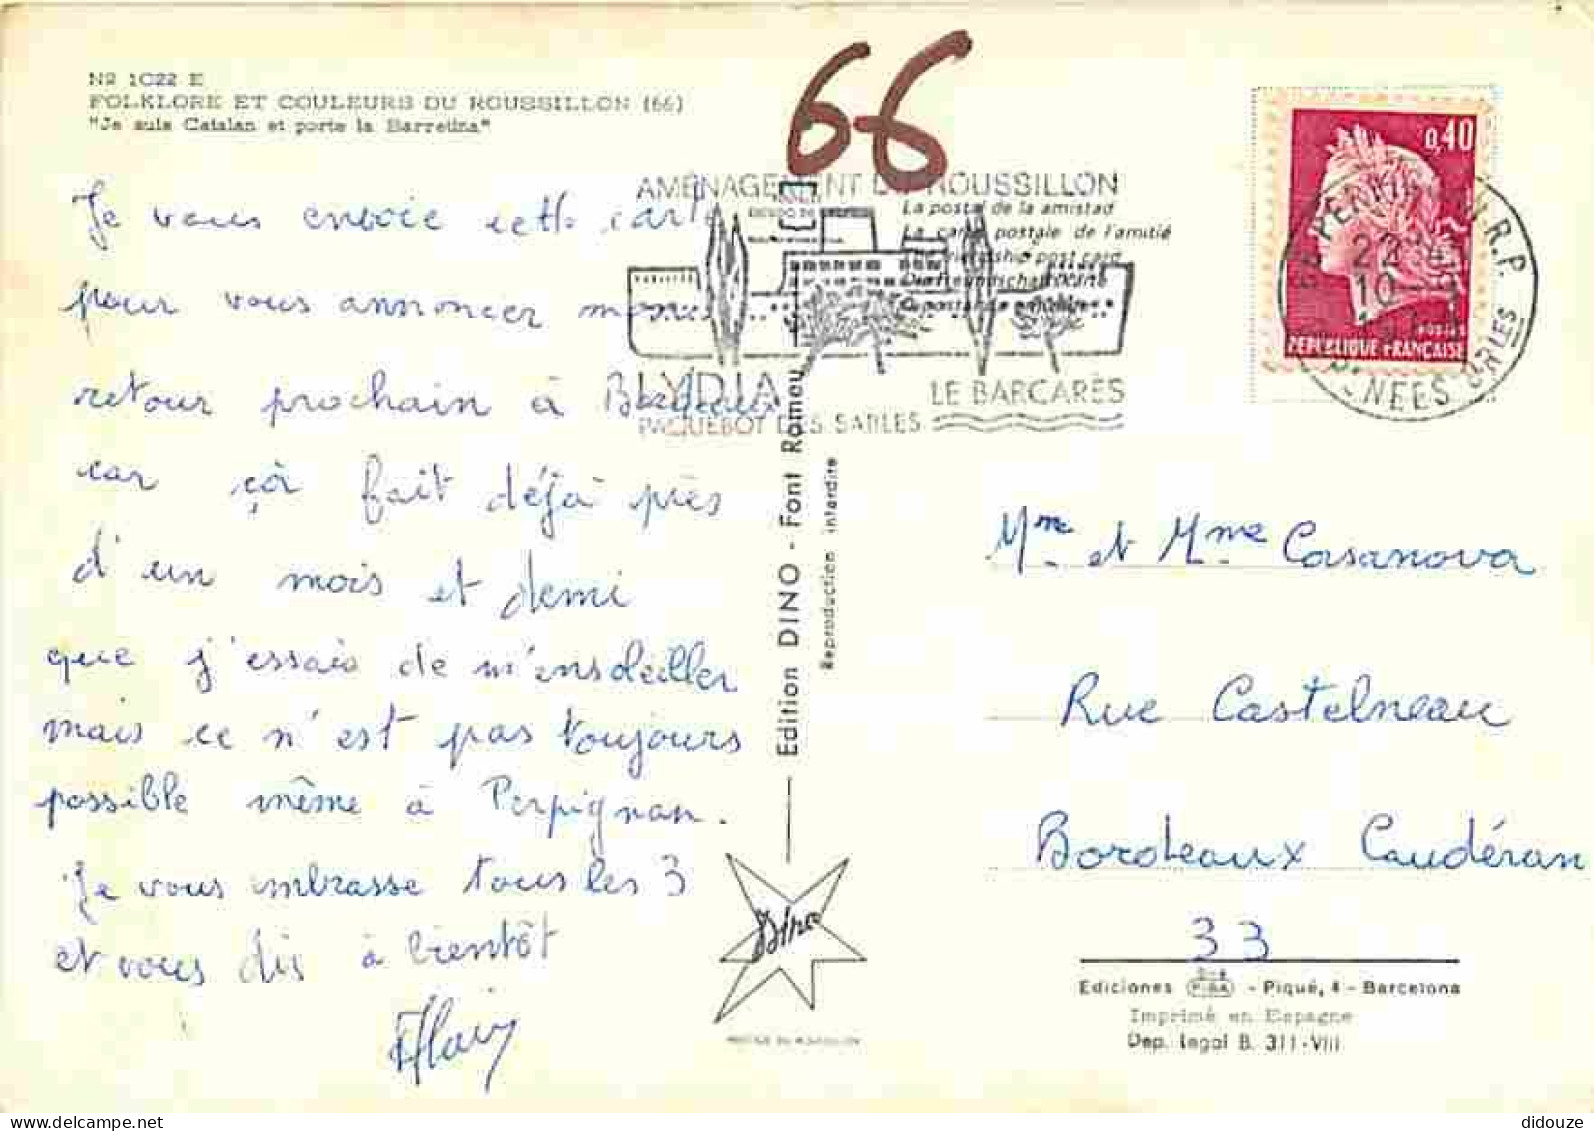 Nº 1022 E
FOLKLORE ET COULEURS DU ROUSSILLON (66)
"Je suis Catalan et porte la Barretina"
66
Je vous envoie cette carte
pour vous annoncer mon
retour prochain à Bordeaux
car çà fait déjà près
d'un mois et demi
que j'essais de m'ensoleiller
mais ce n'est pas toujours
possible même à Perpignan.
Je vous embrasse tous les 3
et vous dis à bientôt
Alain
AMENAGEMENT DU ROUSSILLON
La postal de la amistad
La carte postale de l'amitié
The friendship post card
LYDIA
PAQUEBOT DES SABLES
LE BARCARÈS
Edition DINO - Font Romeu
Reproduction interdite
Dino
0,40
POSTES
REPUBLIQUE FRANÇAISE
66 PERPIGNAN R.P.
22
10
Mr et Mme Casanova
Rue Castelneau
Bordeaux Caudéran
33
Ediciones PIBA - Piqué, 4 - Barcelona
Imprimé en Espagne
Dep. legal B. 311-VIII
didouze